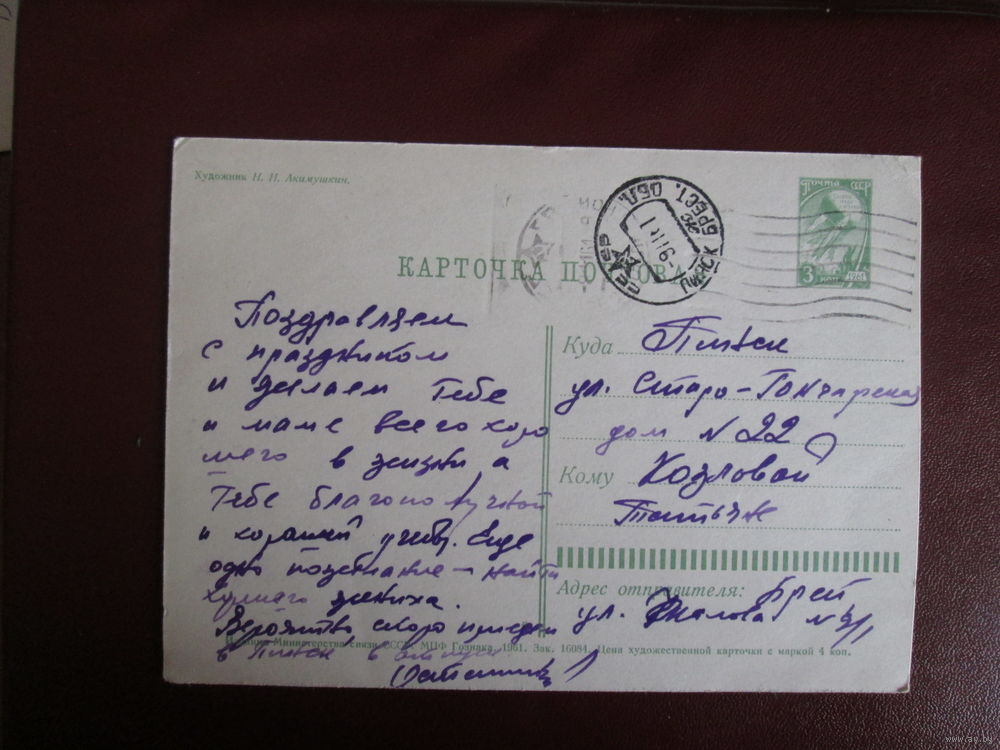 Художник Н. Н. Акимушкин.
ПОЧТА СССР
3 КОП 1961
ПИНСК БРЕСТ. ОБЛ.
КАРТОЧКА
Поздравляем
с праздником
и желаем Тебе
и маме всего хоро
шего в жизни, а
Тебе благополучной
и хорошей учебы. Еще
одно пожелание – найти
хорошего жениха.
Вероятно скоро приедем
в Пинск в
Куда Пинск
ул. Старо-Гончарская
дом N 22
Кому Козловой
Татьяне
Адрес отправителя: Брест
ул.
Министерства связи СССР. МПФ Гознака. 1961. Зак. 16084. Цена художественной карточки с маркой 4 коп.
www.ay.by